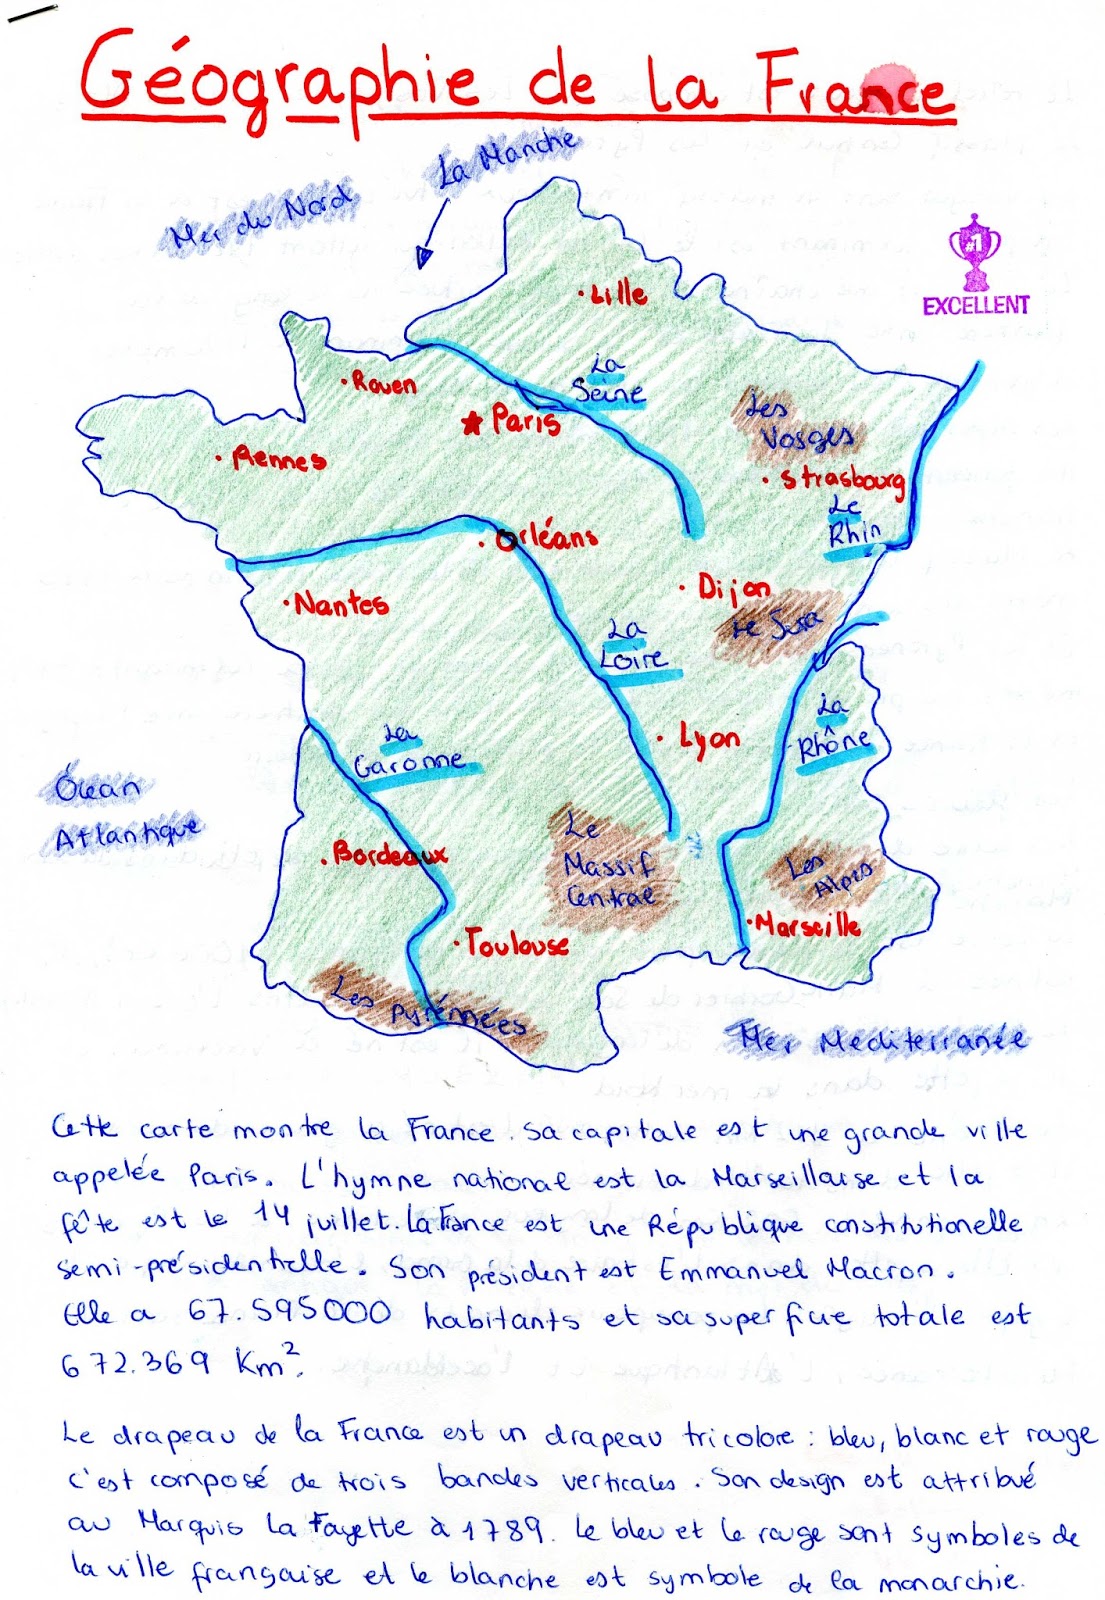 Géographie de la France
La Manche
Mer du Nord
#1
EXCELLENT
Lille
Rouen
La
Seine
Paris
Les
Vosges
Rennes
Strasbourg
Le
Rhin
Orléans
Dijon
Nantes
Le Jura
La
Loire
La
Rhône
Lyon
La
Garonne
Océan
Atlantique
Le
Massif
Central
Bordeaux
Les
Alpes
Marseille
Toulouse
Les Pyrénnées
Mer Mediterranée
Cette carte montre la France. Sa capitale est une grande ville
appelée Paris. L'hymne national est la Marseillaise et la
fête est le 14 juillet. La France est une République constitutionelle
semi-présidentielle. Son président est Emmanuel Macron.
Elle a 67.595000 habitants et sa superficie totale est
672.369 Km².
Le drapeau de la France est un drapeau tricolore : bleu, blanc et rouge
c'est composé de trois bandes verticales. Son design est attribué
au Marquis La Fayette à 1789. Le bleu et le rouge sont symboles de
la ville française et le blanche est symbole de la monarchie.